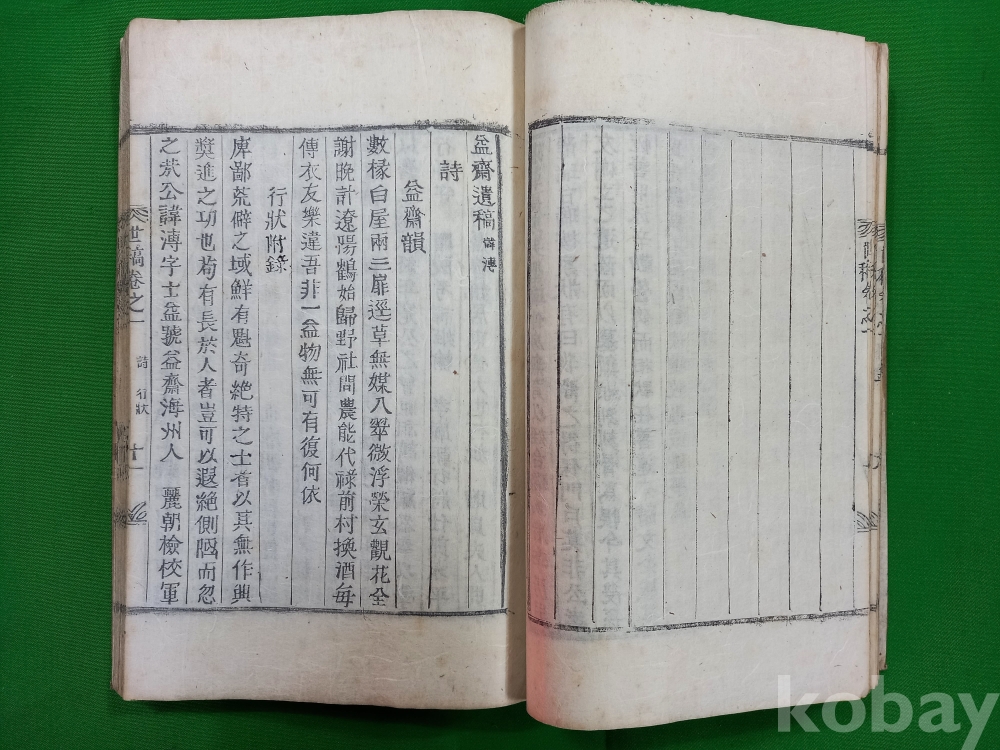 益齋遺稿 諱溥
詩
益齋韻
數椽白屋兩三扉逕草無媒入翠微浮榮玄觀花全
謝晩計遼陽鶴始歸野社問農能代祿前村換酒每
傳衣友樂違吾非一益物無可有復何依
行狀附錄
庳鄙荒僻之域鮮有魁奇絶特之士者以其無作興
奬進之功也苟有長於人者豈可以遐絶側陋而忽
之㢤公諱溥字士益號益齋海州人 麗朝檢校軍
世稿卷之一 詩 行狀 十一
kobay